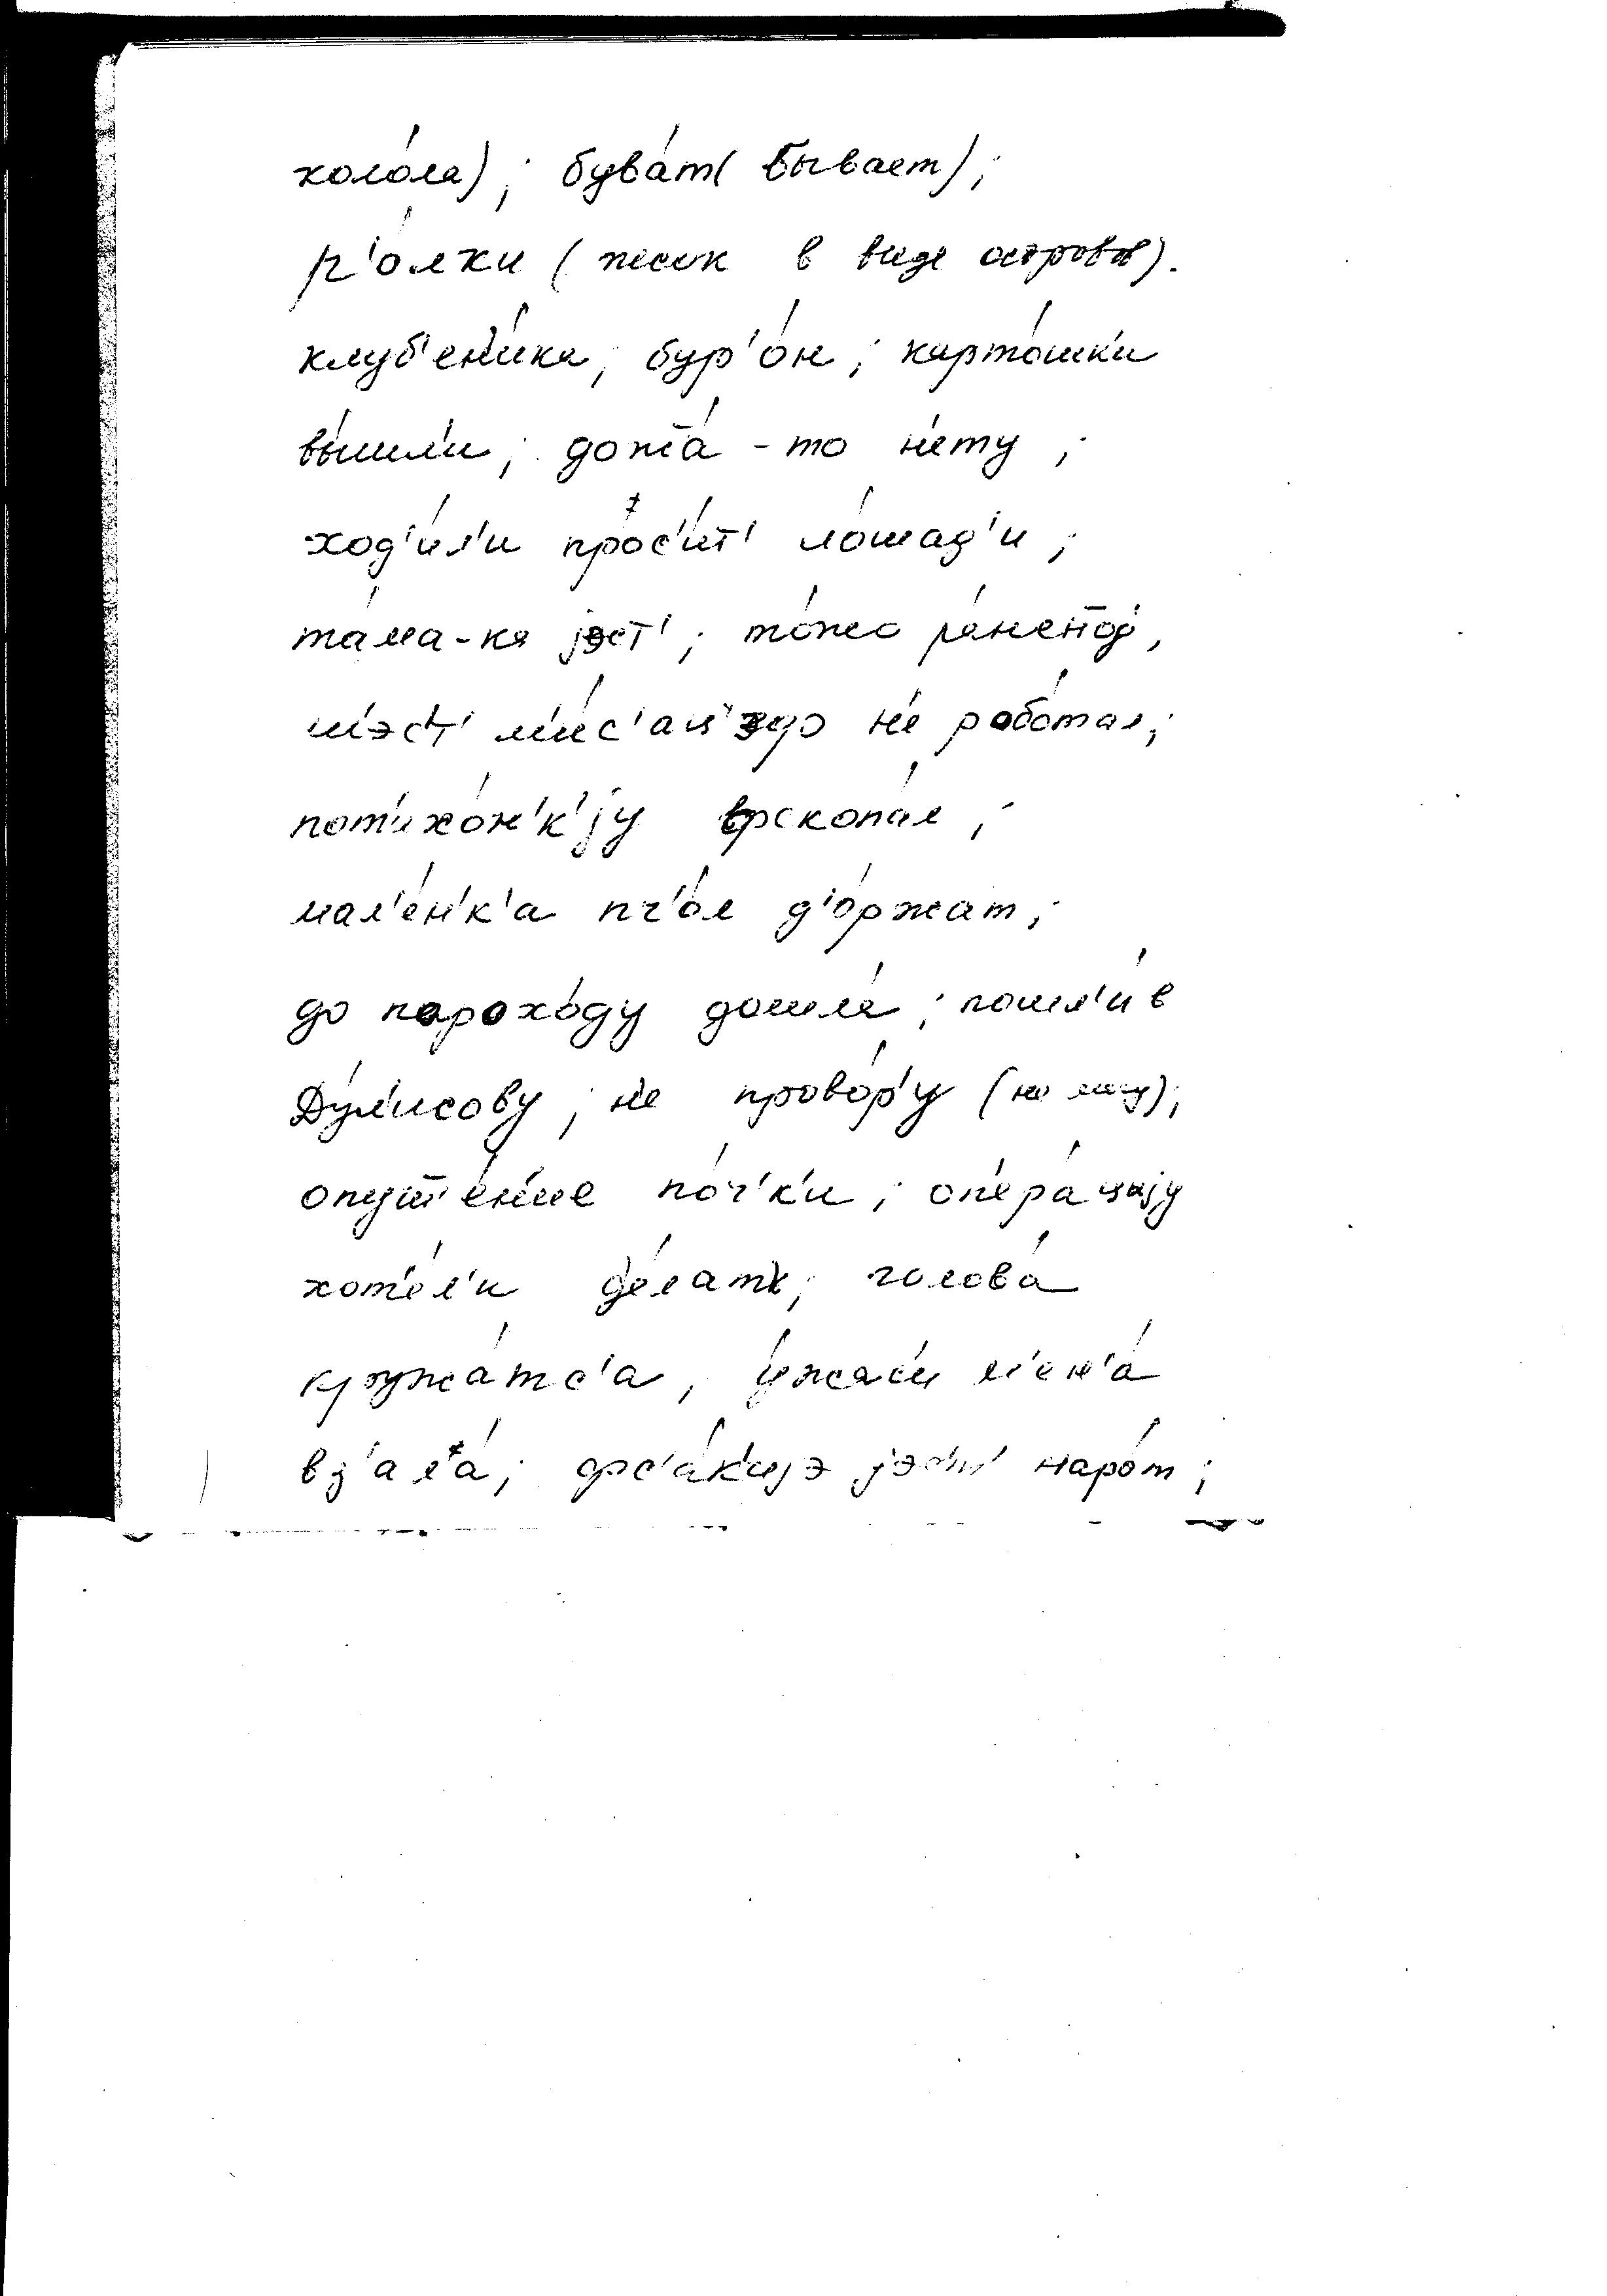 холо́ла); бува́т (бывает);
р'о́лки (песок в виде островов).
клуб'ен'и́ка; бур'о́н; карто́шки
вы́шли; дожа́-то не́ту;
ход'и́л'и прос'и́т' ло́шад'и;
та́ма-ка jэст'; то́жо ра́неноj,
шэст' м'и́с'ац н'е рабо́тал;
пот'ихо́н'к'jу вскопа́л;
мал'е́н'к'а пч'о́л д'о́ржат;
до парохо́ду дошла́; пошл'и́ в
Ду́л'исову; н'е провор'у́
опушш'е́н'ие по́ч'к'и; оп'ера́цыjу
хот'е́л'и д'е́лат'; голова́
кружа́тс'а, м'ен'а́
вз'ала́; фс'а́к'иjэ jэст' наро́т;